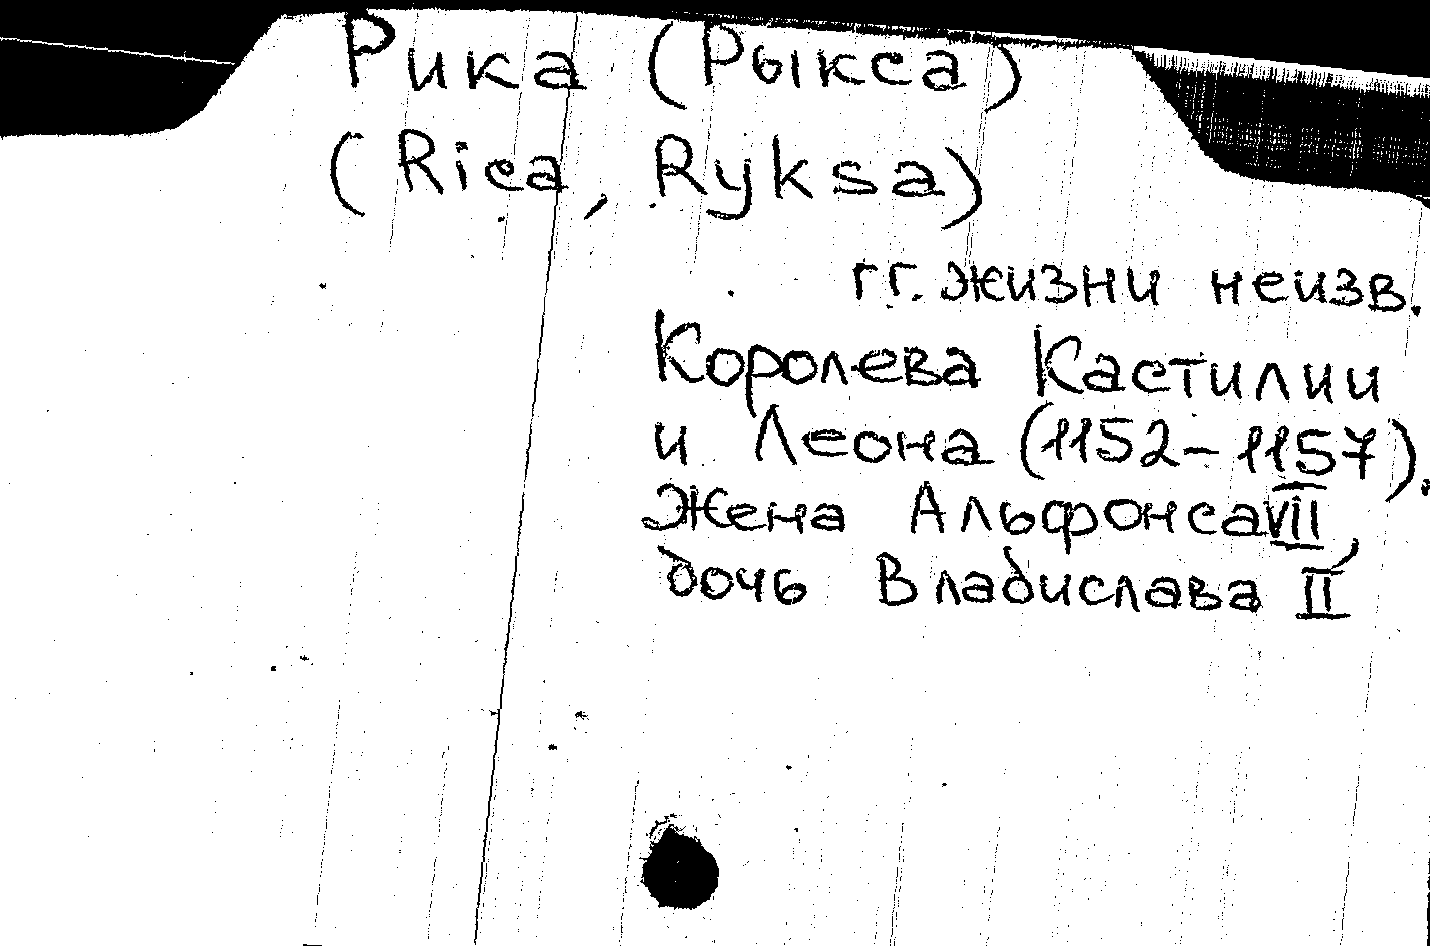 Рика (Рыкса)
(Rica, Ryksa)
гг. жизни неизв.
Королева Кастилии
и Леона (1152-1157).
Жена Альфонса VII,
дочь Владислава II